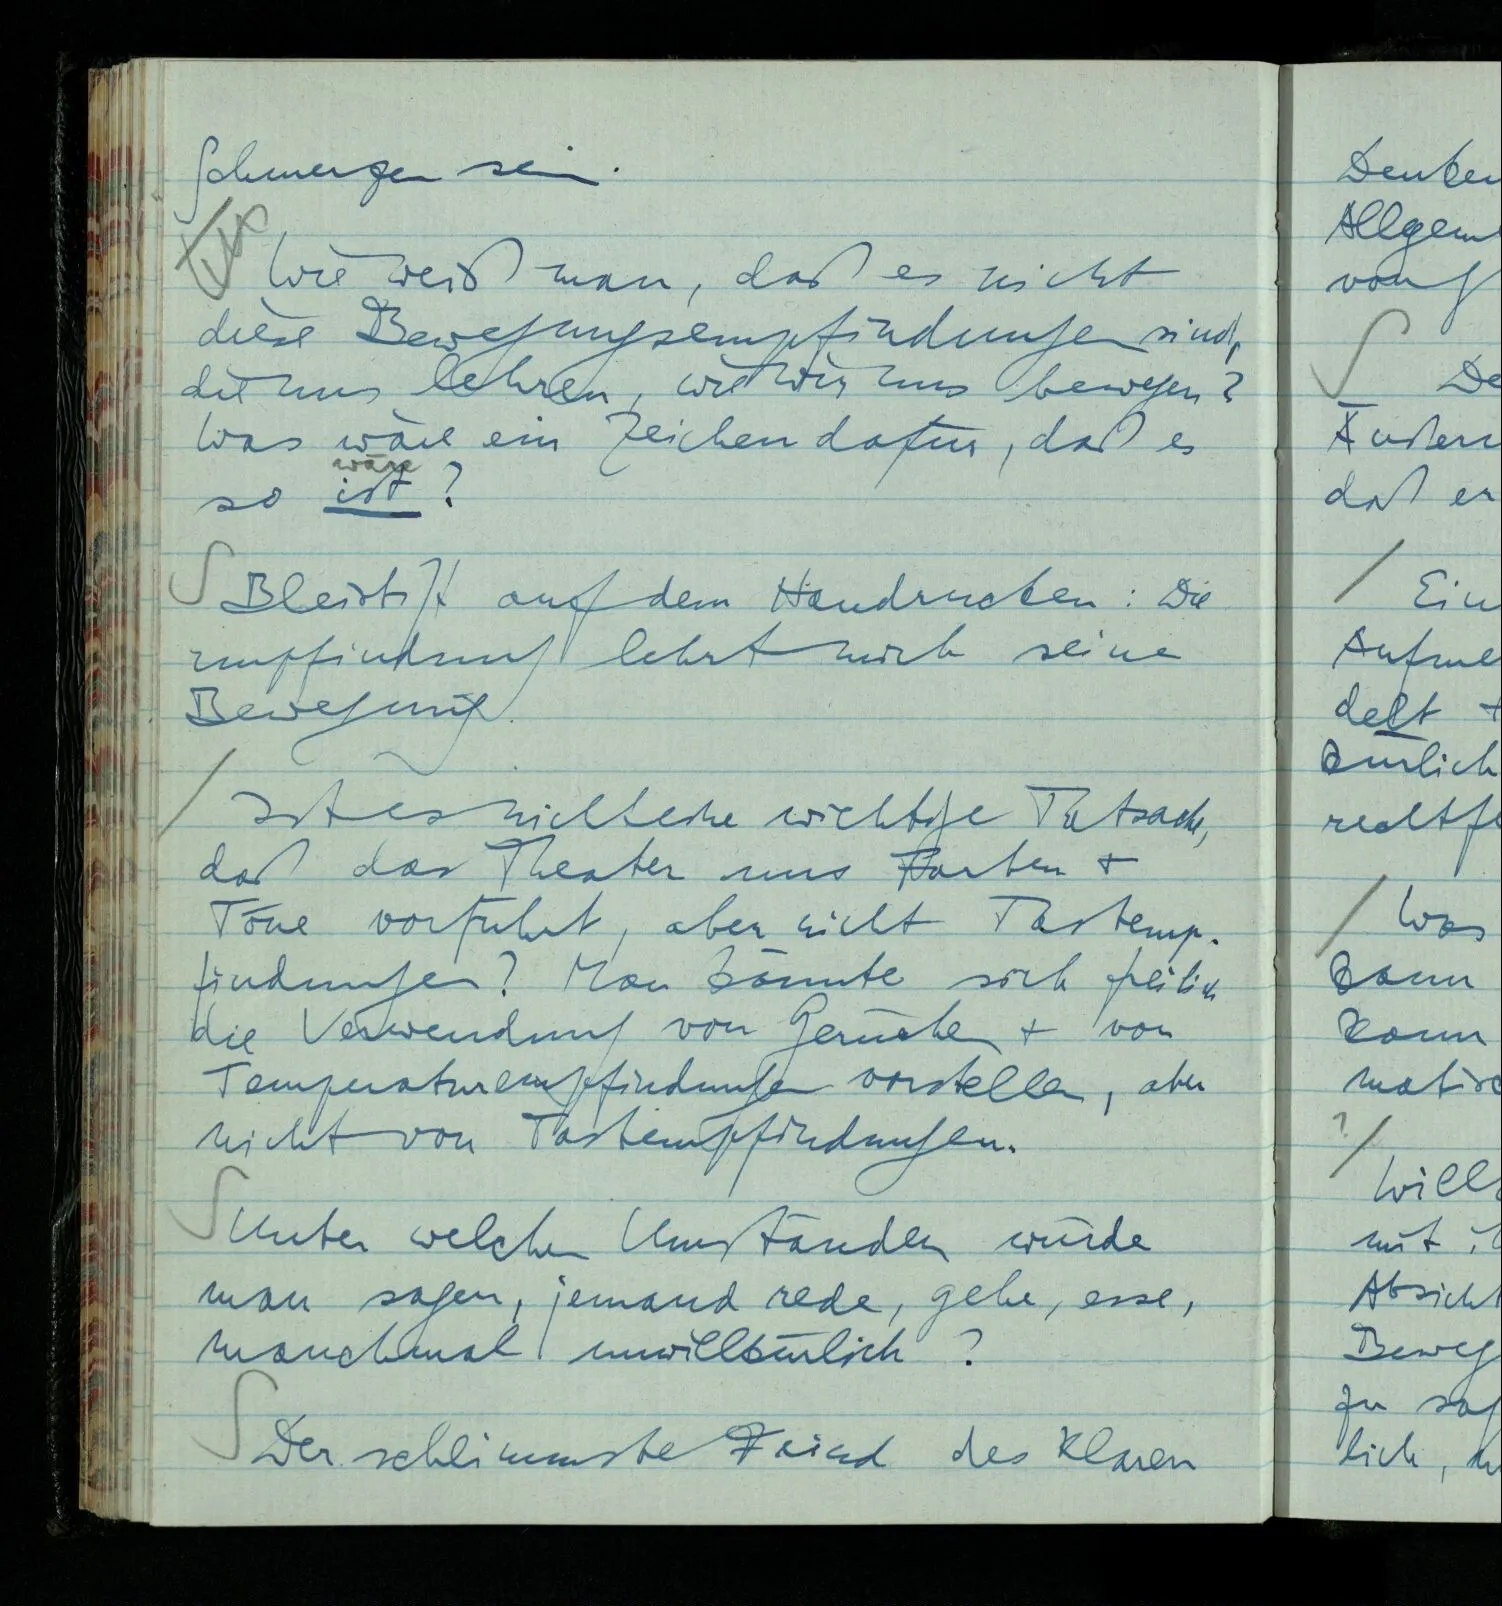 Schmerzen sein.
Wie weiß man, daß es nicht
diese Bewegungsempfindungen sind,
die uns lehren, wie wir uns bewegen?
Was wäre ein Zeichen dafür, daß es
wäre
so ist?
∫ Bleistift auf dem Handrücken: Die
Empfindung lehrt mich seine
Bewegung.
/ Ist es nicht eine wichtige Tatsache,
daß das Theater uns Farben +
Töne vorführt, aber nicht Tastemp-
findungen? Man könnte sich freilich
die Verwendung von Gerüchen + von
Temperaturempfindungen vorstellen, aber
nicht von Tastempfindungen.
∫ Unter welchen Umständen würde
man sagen, jemand rede, gehe, esse,
manchmal unwillkürlich?
∫ Der schlimmste Feind des klaren
Denken
Allgem
∫ De
Äußeru
daß er
/ Ein
Aufme
delt +
kürlich
rechtfe
/ Was
kann
kann
? / Will
mit
Absicht
Beweg
zu sag
lich,